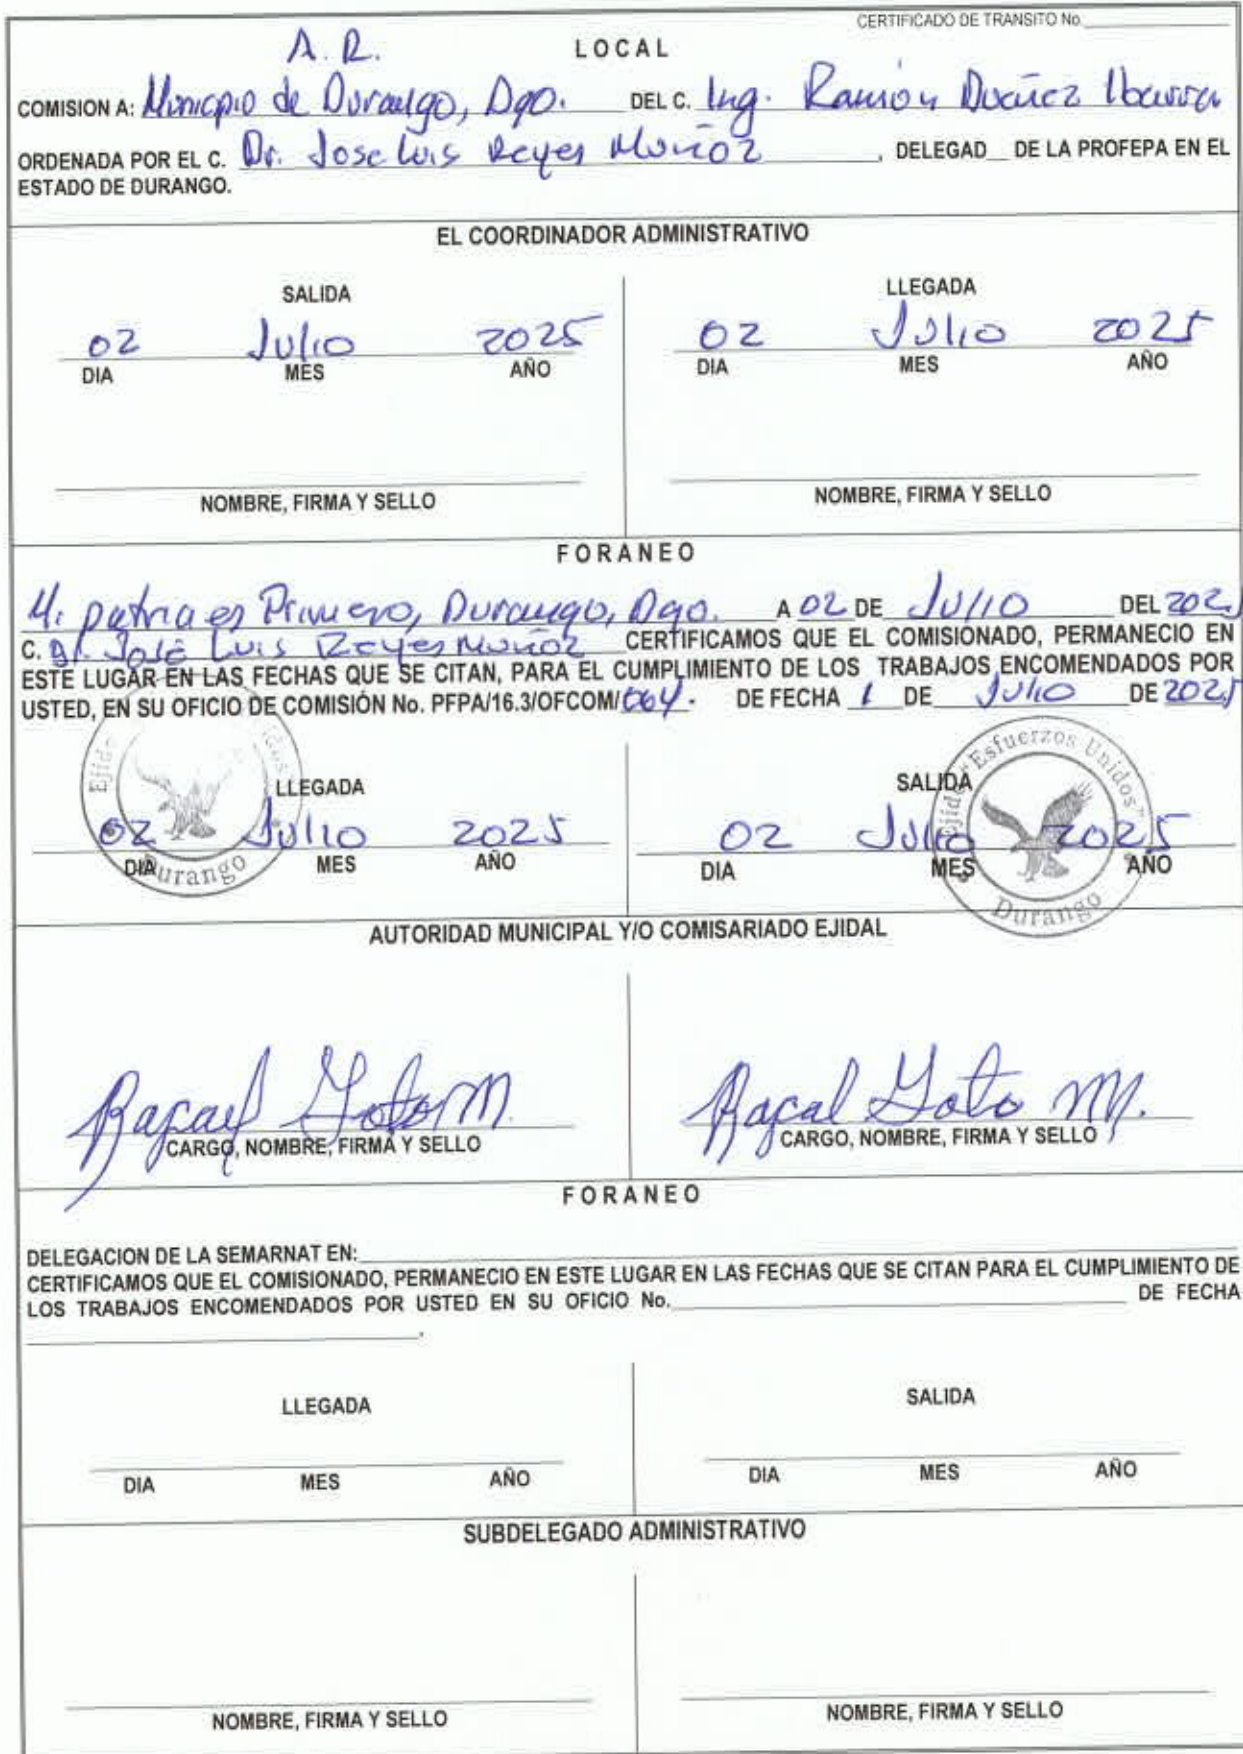 CERTIFICADO DE TRANSITO No.
A. R.
LOCAL
COMISION A: Municipio de Durango, Dgo. DEL C. Ing. Ramón
ORDENADA POR EL C. Dr. Jose Luis Reyes Muñoz, DELEGAD__ DE LA PROFEPA EN EL
ESTADO DE DURANGO.
EL COORDINADOR ADMINISTRATIVO
SALIDA LLEGADA
02 Julio 2025 02 Julio 2025
DIA MES AÑO DIA MES AÑO
NOMBRE, FIRMA Y SELLO NOMBRE, FIRMA Y SELLO
FORANEO
Mi patria es Primero, Durango, Dgo. A 02 DE Julio DEL 2025
C. Dr. José Luis Reyes Muñoz CERTIFICAMOS QUE EL COMISIONADO, PERMANECIO EN
ESTE LUGAR EN LAS FECHAS QUE SE CITAN, PARA EL CUMPLIMIENTO DE LOS TRABAJOS ENCOMENDADOS POR
USTED, EN SU OFICIO DE COMISIÓN No. PFPA/16.3/OFCOM/064. DE FECHA 1 DE Julio DE 2025
Ejido Durango
Ejido "Esfuerzos Unidos" Durango
LLEGADA SALIDA
02 Julio 2025 02 Julio 2025
DIA MES AÑO DIA MES AÑO
AUTORIDAD MUNICIPAL Y/O COMISARIADO EJIDAL
Rafael Soto M. Rafael Soto M.
CARGO, NOMBRE, FIRMA Y SELLO CARGO, NOMBRE, FIRMA Y SELLO
FORANEO
DELEGACION DE LA SEMARNAT EN:
CERTIFICAMOS QUE EL COMISIONADO, PERMANECIO EN ESTE LUGAR EN LAS FECHAS QUE SE CITAN PARA EL CUMPLIMIENTO DE
LOS TRABAJOS ENCOMENDADOS POR USTED EN SU OFICIO No. DE FECHA
.
LLEGADA SALIDA
DIA MES AÑO DIA MES AÑO
SUBDELEGADO ADMINISTRATIVO
NOMBRE, FIRMA Y SELLO NOMBRE, FIRMA Y SELLO